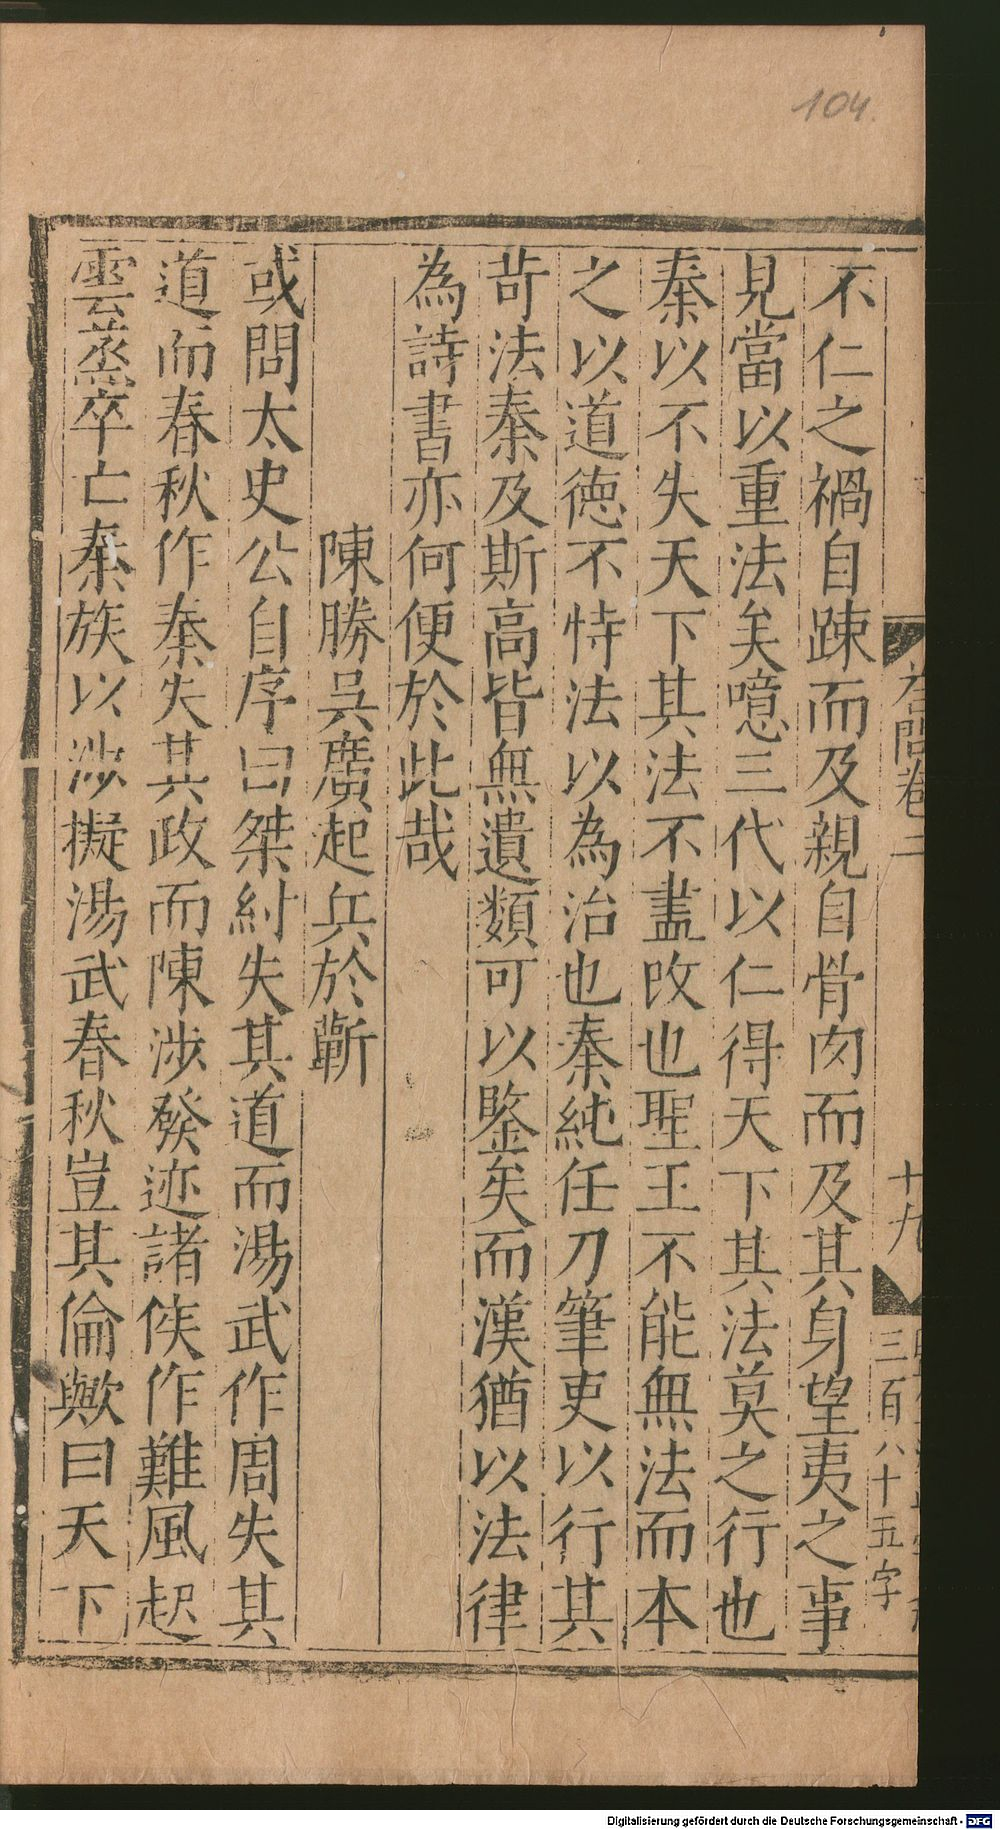 104.
答問卷二
十九
三百八十五字
不仁之禍自踈而及親自骨肉而及其身望夷之事
見當以重法矣噫三代以仁得天下其法莫之行也
秦以不失天下其法不盡改也聖王不能無法而本
之以道徳不恃法以為治也秦純任刀筆吏以行其
苛法秦及斯高皆無遺類可以鑒矣而漢猶以法律
為詩書亦何便於此哉
陳勝吳廣起兵於蘄
或問太史公自序曰桀紂失其道而湯武作周失其
道而春秋作秦失其政而陳渉發迹諸侯作難風起
雲蒸卒亡秦族以渉擬湯武春秋豈其倫歟曰天下
Digitalisierung gefördert durch die Deutsche Forschungsgemeinschaft - DFG